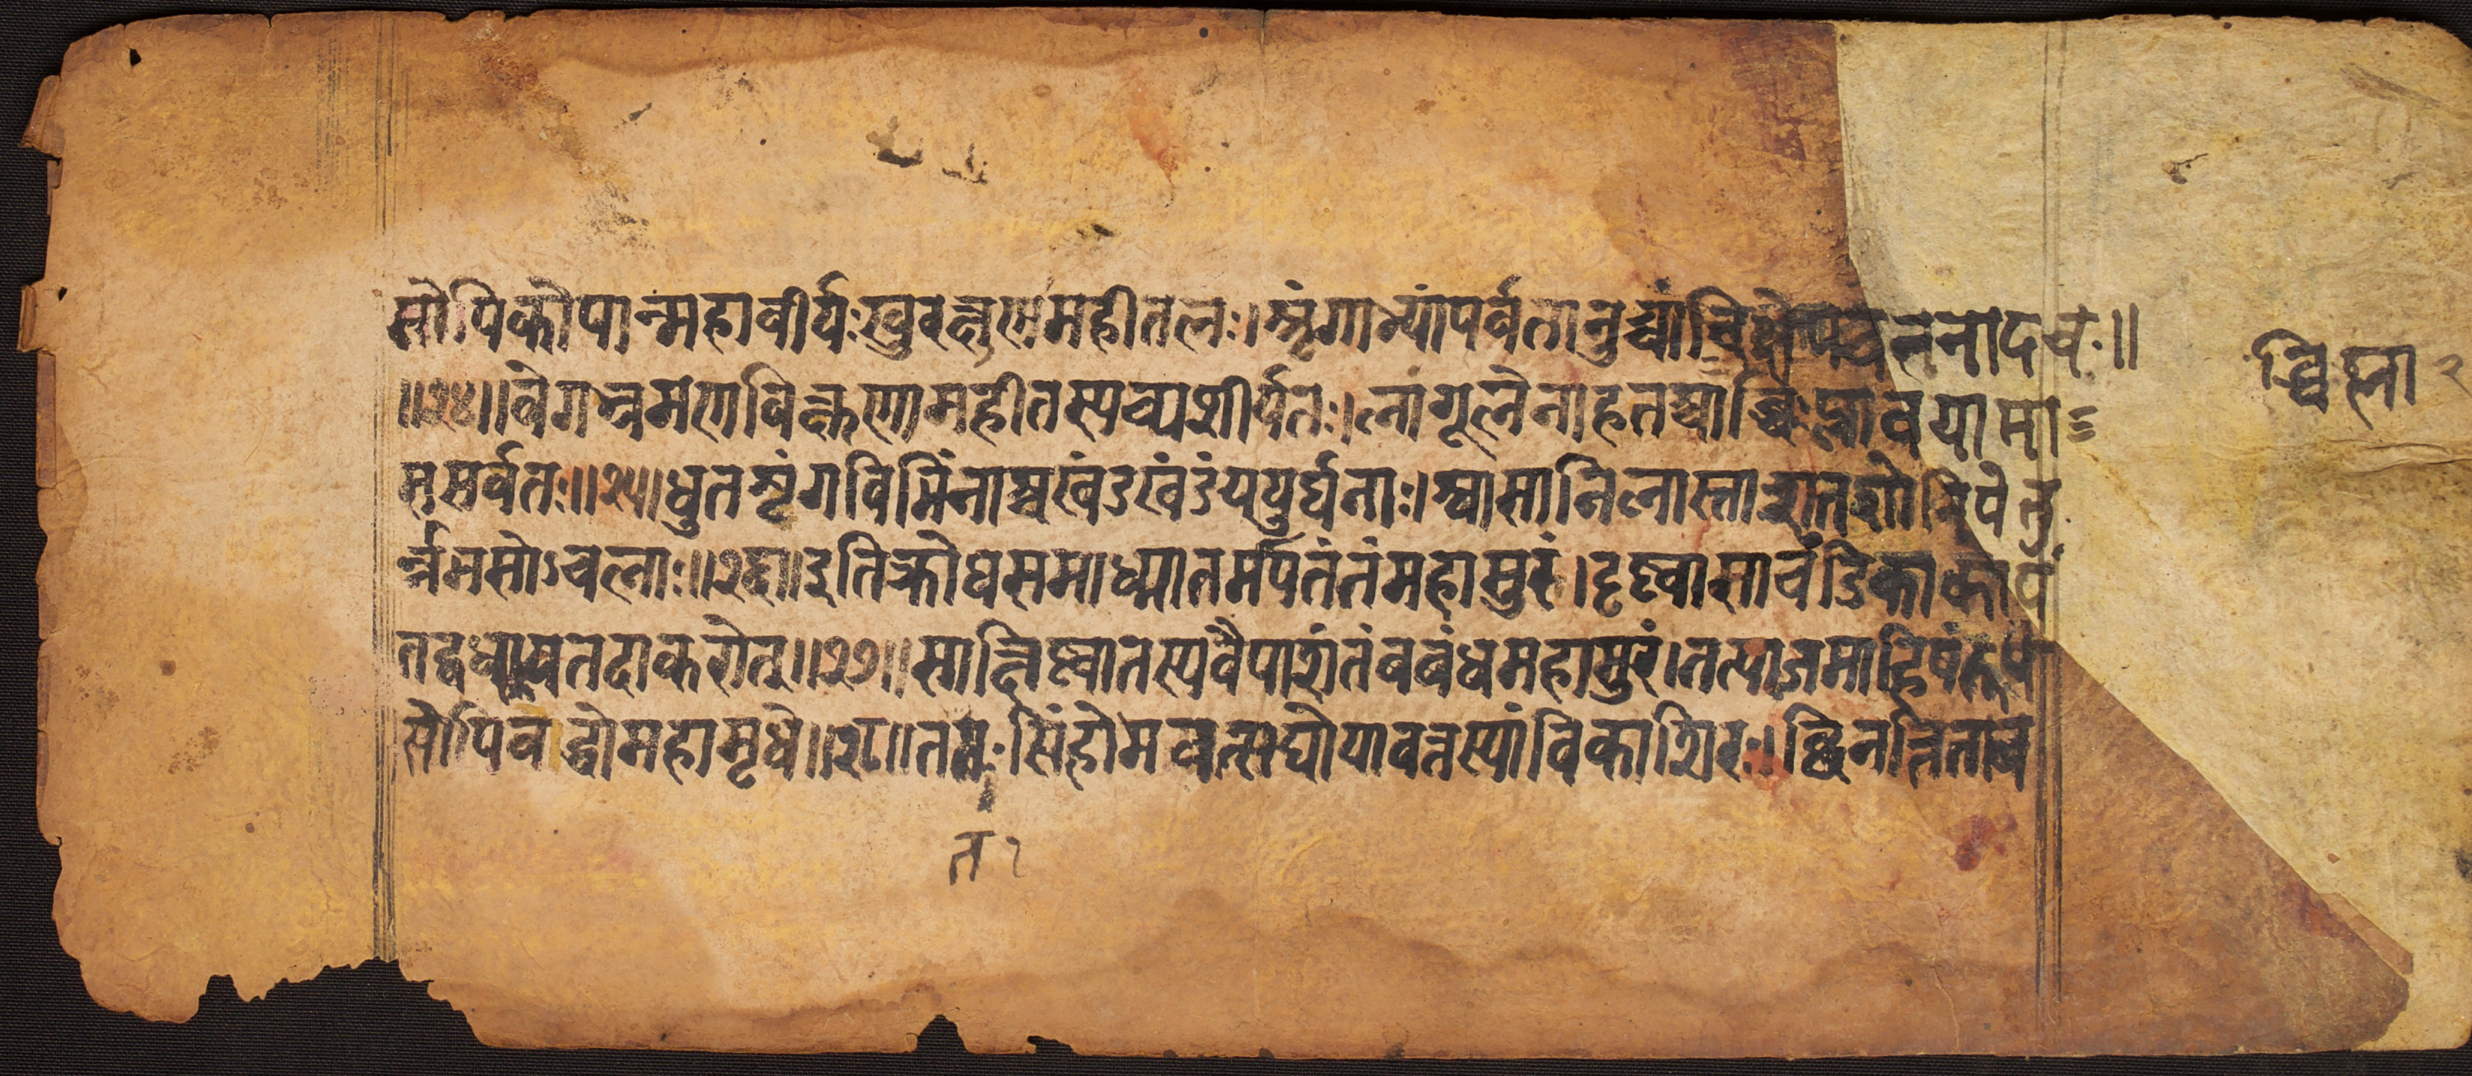 सोपिकोपान्महावीर्यःखुरक्षुण्णमहीतलः।शृंगाभ्यांपर्वतानुच्चांश्चिक्षेपचननादच॥
॥२४॥वेगभ्रमणविक्षुण्णामहीतस्यव्यशीर्यत।लांगूलेनाहतश्चाब्धिःप्लावयामा
ससर्वतः॥२५॥धुतशृंगविभिंनाश्चखंडखंडंययुर्घनाः।श्वासानिलास्ताःशतशोनिपेतु
र्न्नभसोऽचलाः॥२६॥इतिक्रोधसमाध्मातमापतंतंमहासुरं।दृष्ट्वासाचंडिकाकोपं
तद्वधायतदाकरोत्॥२७॥साक्षिप्त्वातस्यवैपाशंतंबबंधमहासुरं।तत्याजमाहिषंरूपं
सोपिबद्धोमहामृधे॥२८॥ततःसिंहोभवत्सद्योयावत्तस्यांविकाशिरः।छिनत्तिताव
त १